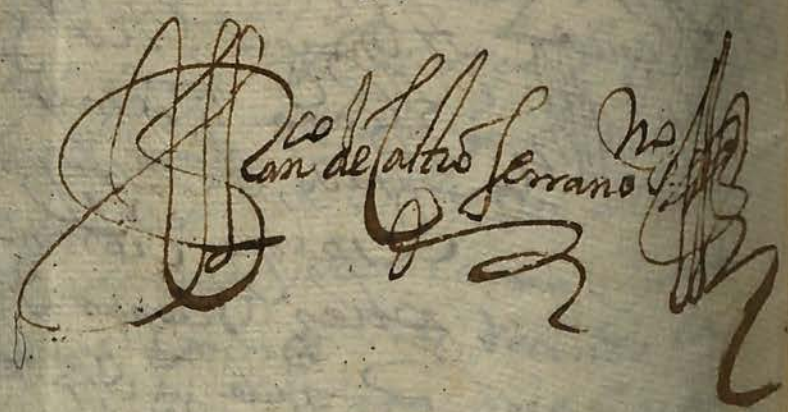 Franco de Castro Serrano No